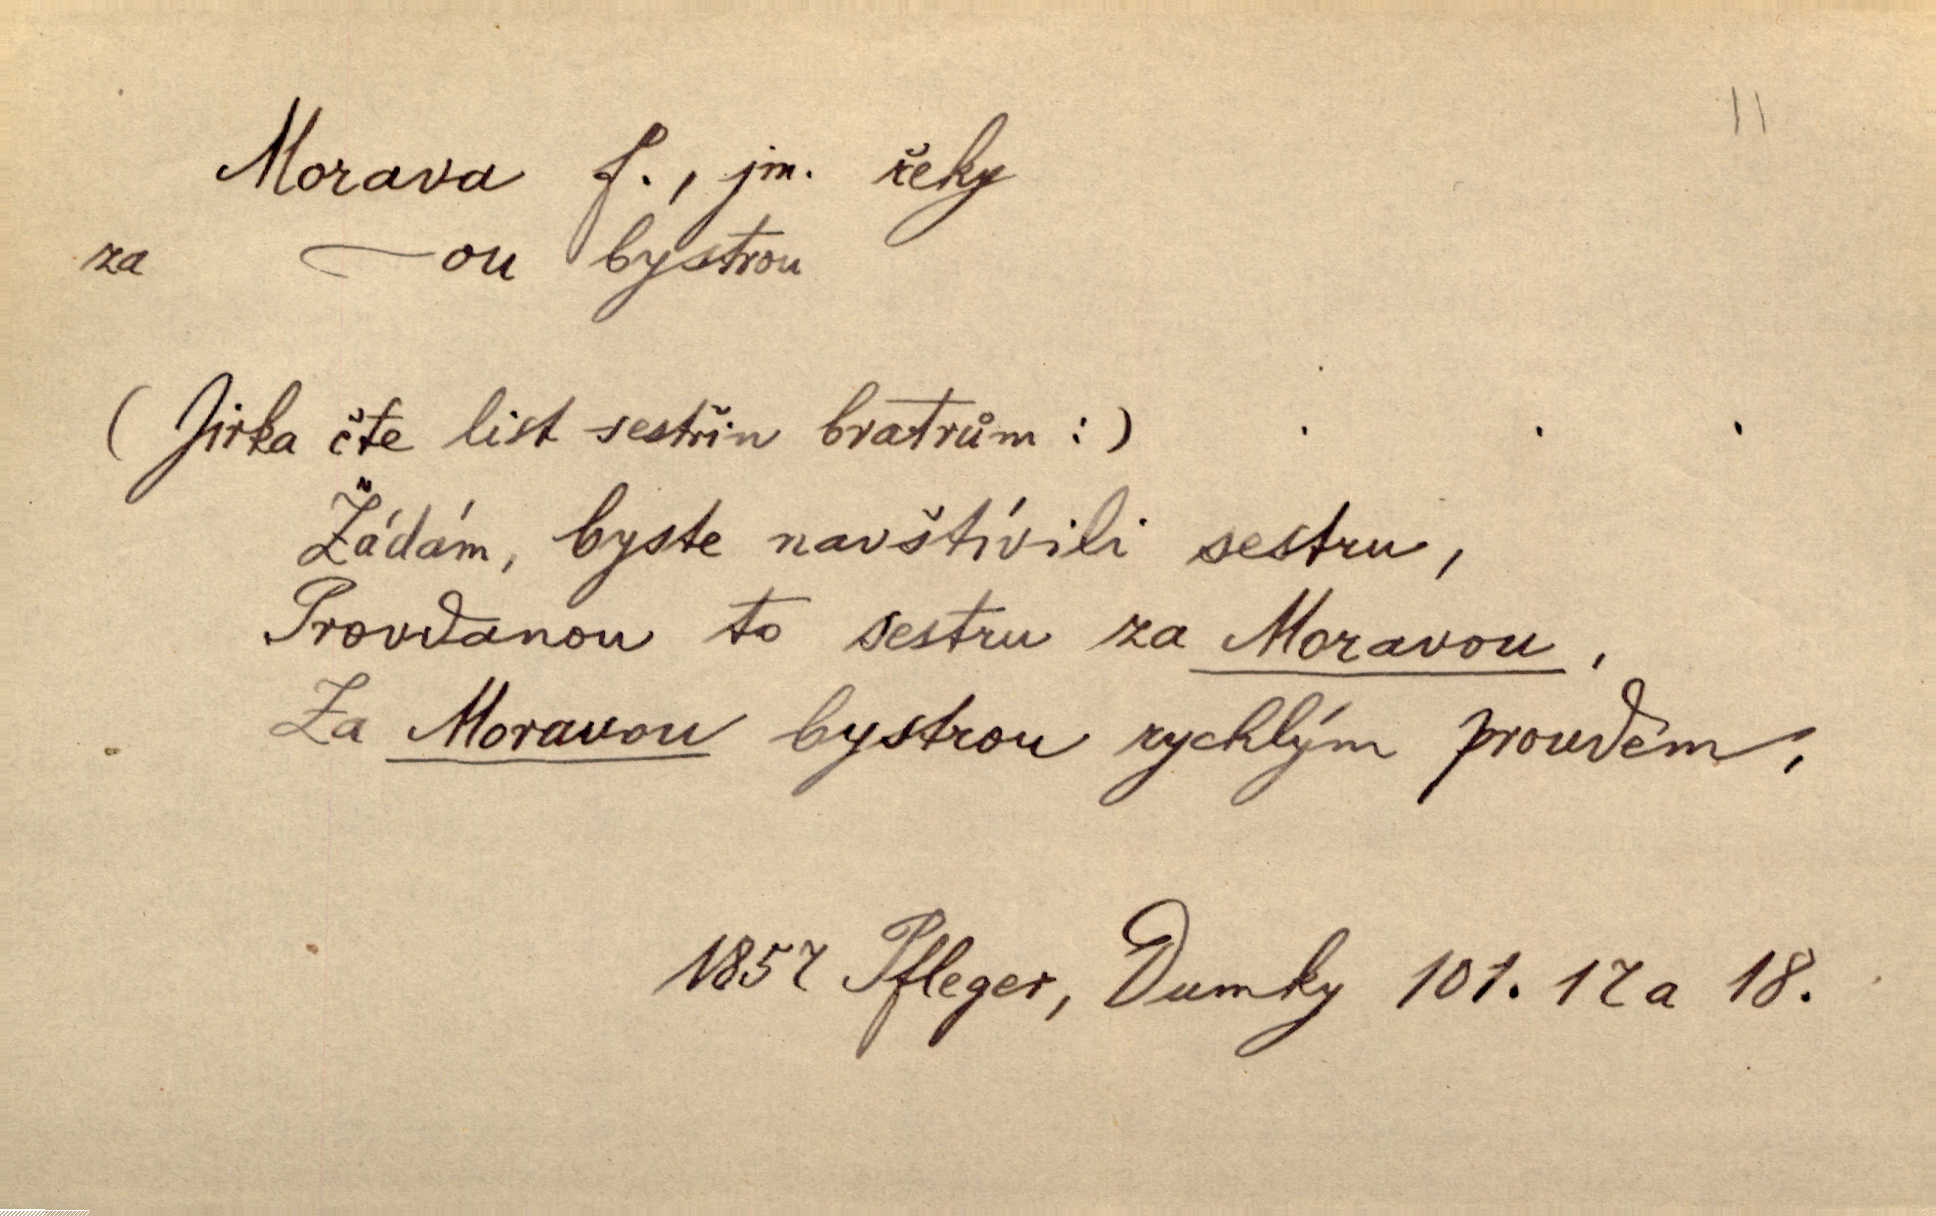 11
Morava f., jm. řeky
za —ou bystrou
(Jirka čte list sestřin bratrům:) . . .
Žádám, byste navštívili sestru,
Provdanou to sestru za Moravou,
Za Moravou bystrou rychlým proudem,
1857 Pfleger, Dumky 101. 17 a 18.